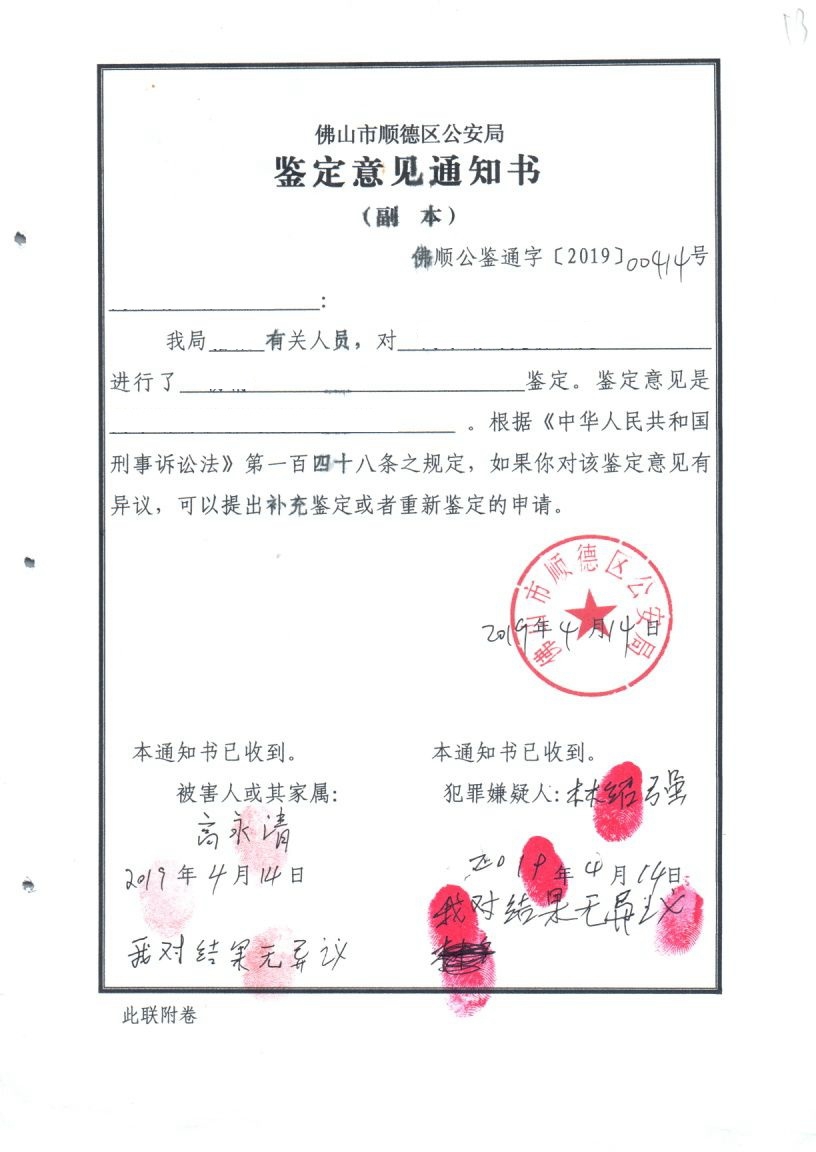 13
佛山市顺德区公安局
鉴定意见通知书
（副 本）
佛顺公鉴通字〔2019〕00414号
：
我局 有关人员，对
进行了 鉴定。鉴定意见是
。根据《中华人民共和国
刑事诉讼法》第一百四十八条之规定，如果你对该鉴定意见有
异议，可以提出补充鉴定或者重新鉴定的申请。
佛山市顺德区公安局
2019年4月14日
本通知书已收到。
被害人或其家属：
高永清
2019年4月14日
我对结果无异议
本通知书已收到。
犯罪嫌疑人：林绍强
2019年4月14日
我对结果无异议
此联附卷